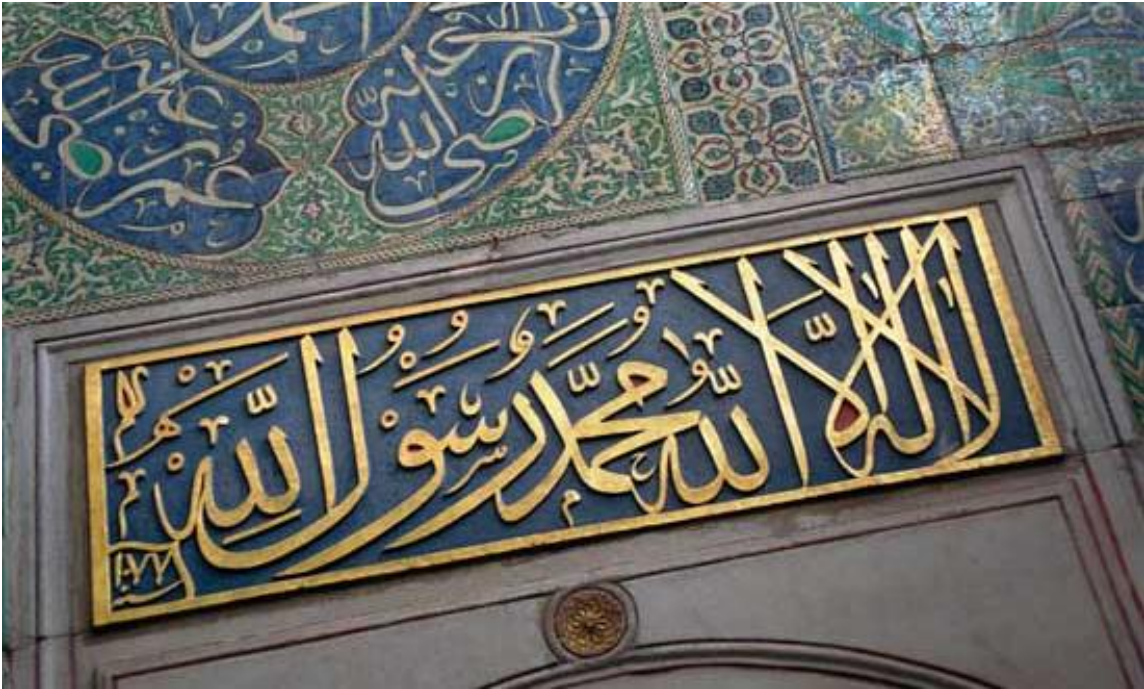 عمر
رضى الله عنه
لا إله إلا الله محمد رسول الله
سنة ١٠٧٧